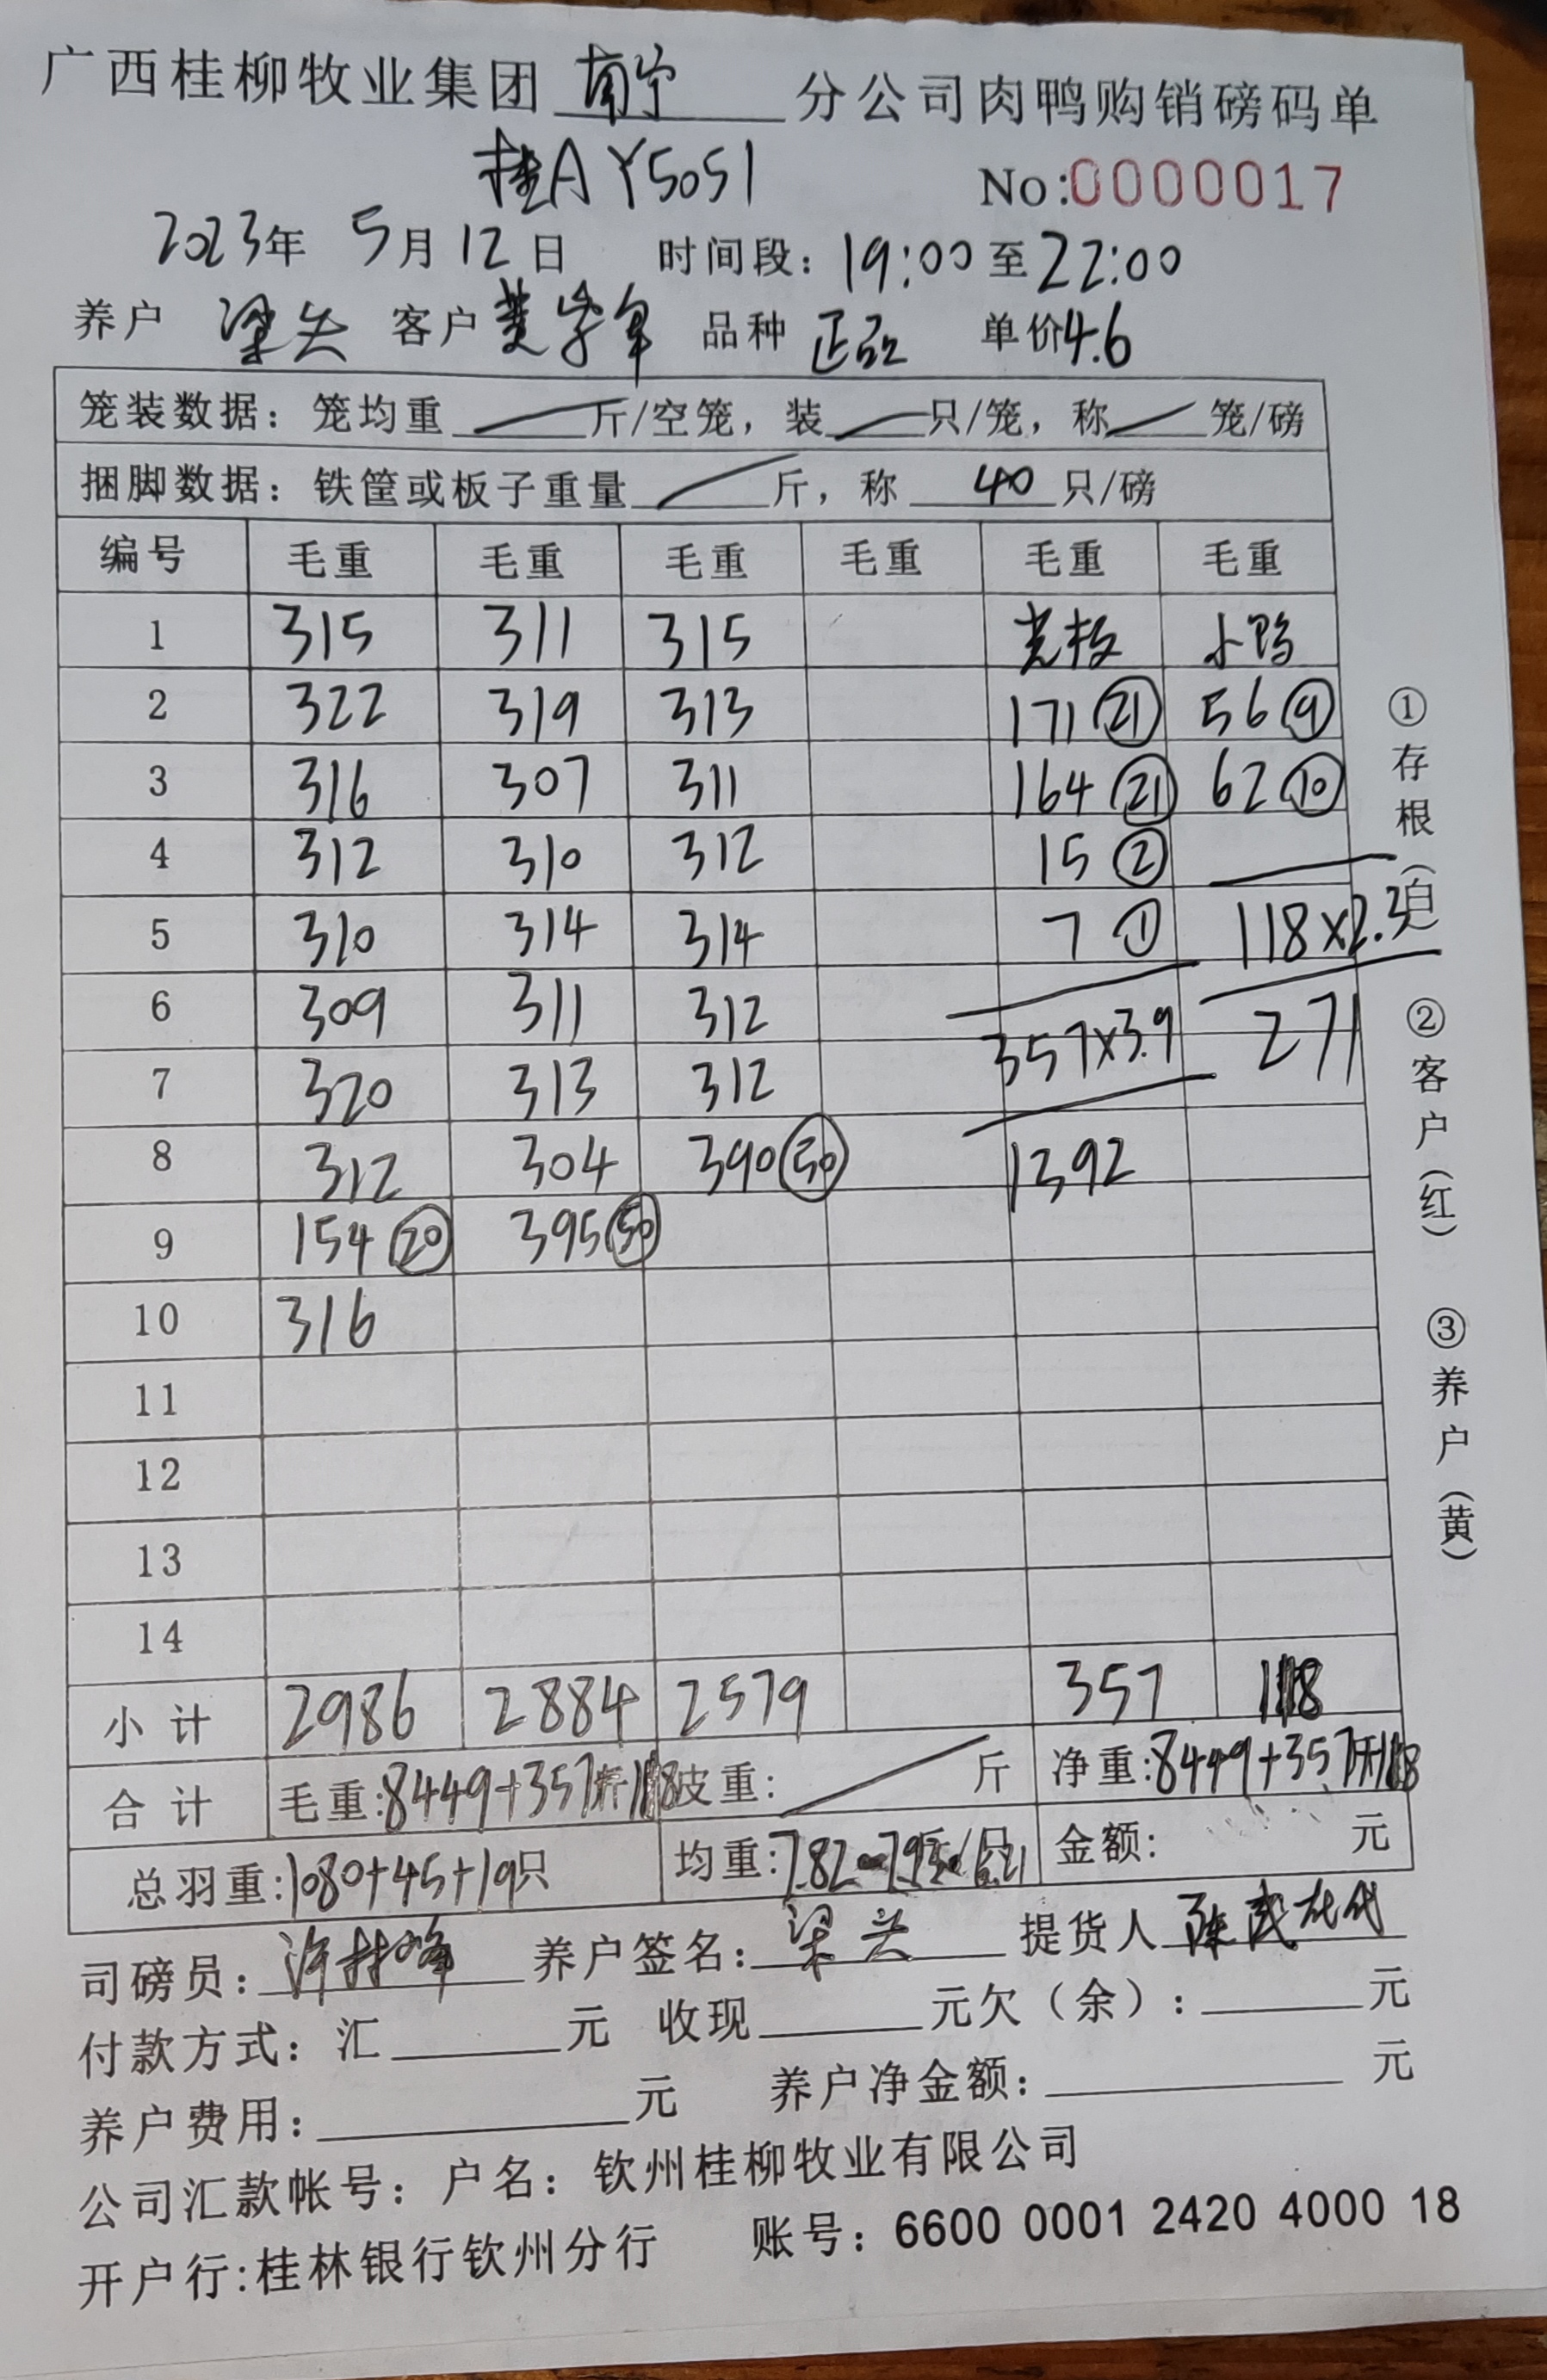 广西桂柳牧业集团 南宁 分公司肉鸭购销磅码单
桂A Y5051 No:0000017
2023年 5月 12日 时间段: 19:00 至 22:00
养户 梁 客户 黄 品种 正品 单价 4.6
笼装数据: 笼均重 斤/空笼, 装 只/笼, 称 笼/磅
捆脚数据: 铁筐或板子重量 斤, 称 40 只/磅
编号 毛重 毛重 毛重 毛重 毛重 毛重
1 315 311 315 光板 小鸭
2 322 319 313 171 21 56 9
3 316 307 311 164 21 62 10
4 312 310 312 15 2
5 310 314 314 7 1 118×2.3
6 309 311 312 357×3.9 271
7 320 313 312
8 312 304 390 50 1392
9 154 20 395 50
10 316
11
12
13
14
小计 2986 2884 2579 357 118
合计 毛重:8449+357+118 皮重: 斤 净重:8449+357+118
总羽重:1080+45+19只 均重:7.82 7.93 6.21 金额: 元
司磅员: 许 养户签名: 梁 提货人 陈武代
付款方式: 汇 元 收现 元欠(余): 元
养户费用: 元 养户净金额: 元
公司汇款帐号: 户名: 钦州桂柳牧业有限公司
开户行:桂林银行钦州分行 账号: 6600 0001 2420 4000 18
①存根(白) ②客户(红) ③养户(黄)